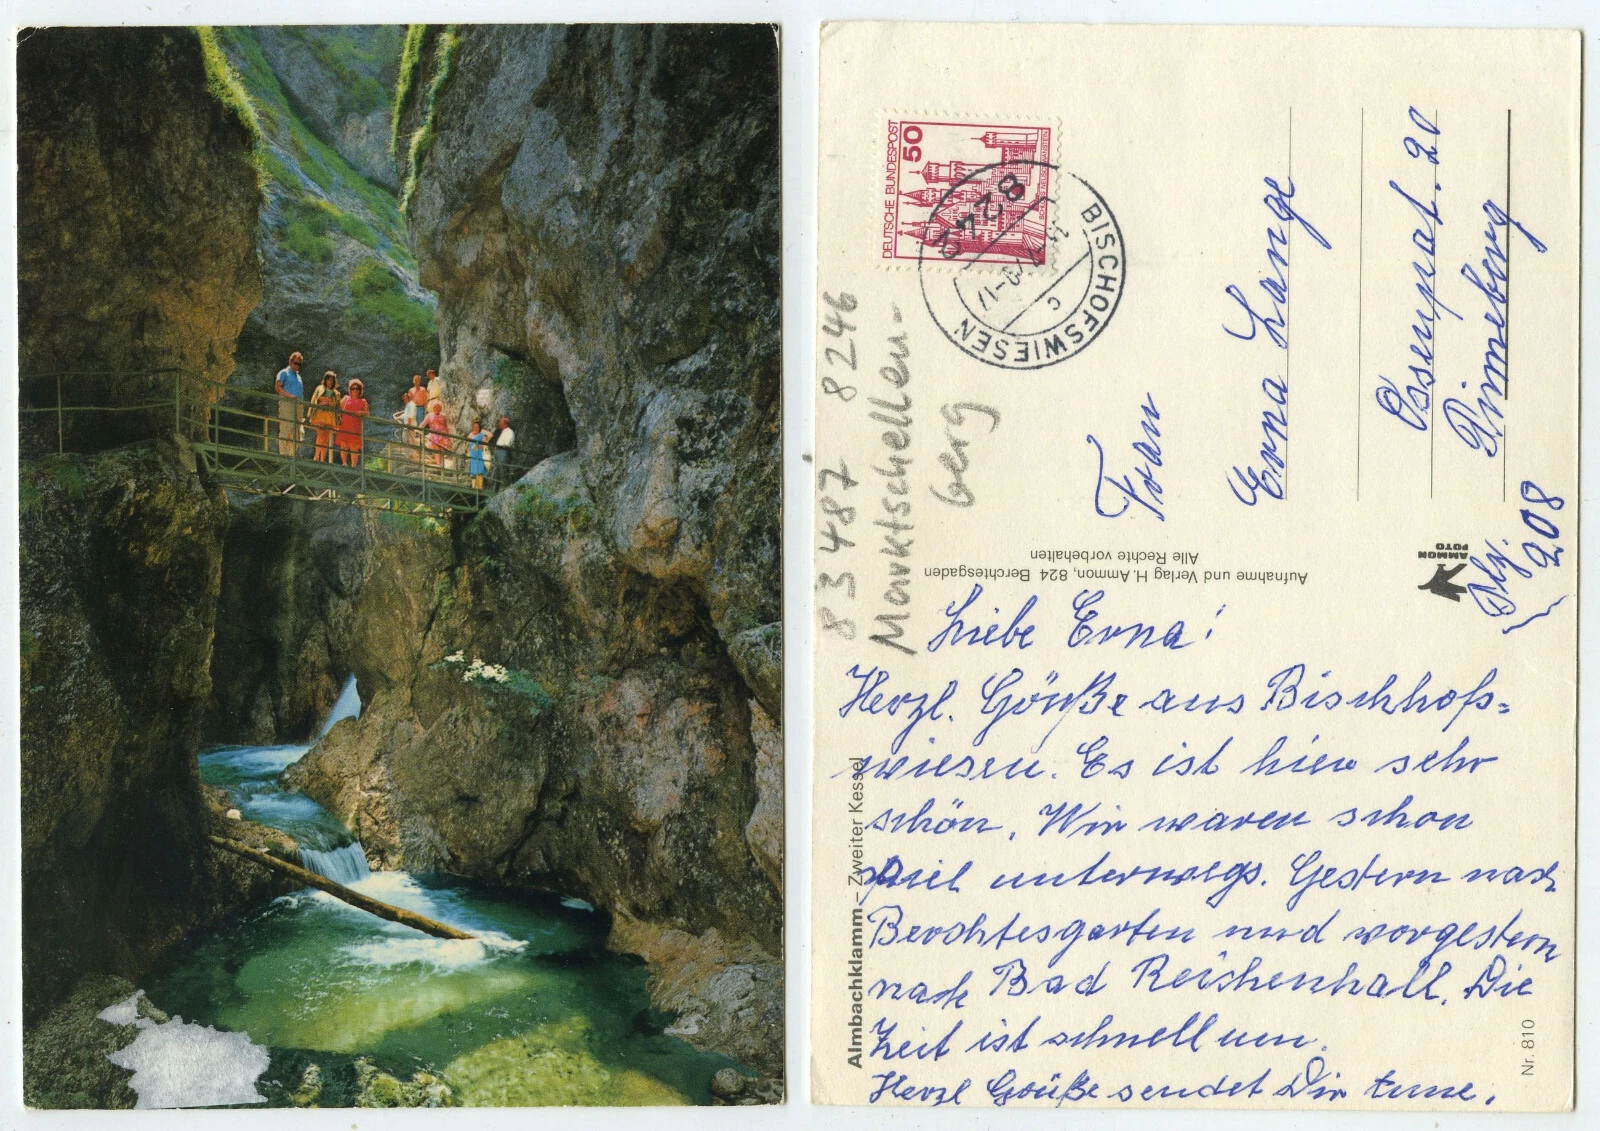 DEUTSCHE BUNDESPOST
50
BISCHOFSWIESEN
8242
c
83487 8246
Marktschellen-
berg
Frau
Erna Lange
Ossenpat. 20
Pinneberg
208
AMMON
FOTO
Aufnahme und Verlag H. Ammon, 824 Berchtesgaden
Alle Rechte vorbehalten
Almbachklamm – Zweiter Kessel
Nr. 810
Liebe Erna!
Herzl. Grüße aus Bischhofs=
wiesen. Es ist hier sehr
schön. Wir waren schon
viel unterwegs. Gestern nach
Berchtesgarten und vorgestern
nach Bad Reichenhall. Die
Zeit ist schnell um.
Herzl Grüße sendet Dir